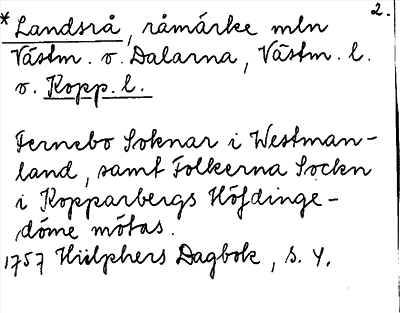 2.
*Landsrå, råmärke mln
Västm. o. Dalarna, Västm. l.
o. Kopp. l.
Fernebo Soknar i Westman-
land, samt Folkerna Sockn
i Kopparbergs Höfdinge-
döme mötas.
1757 Hülphers Dagbok, s. 4.